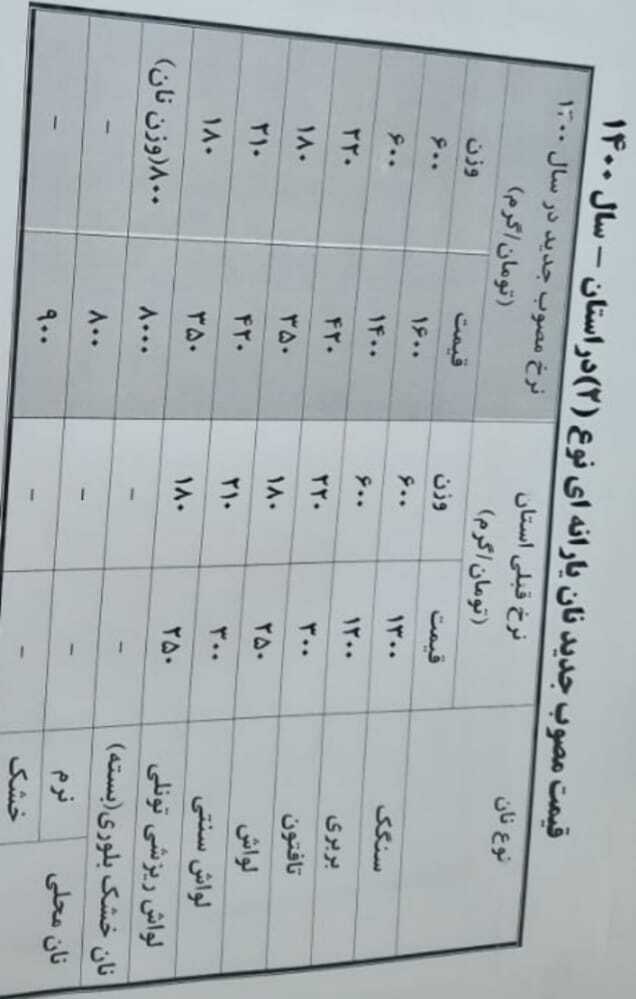 قیمت مصوب جدید نان یارانه ای نوع (۲) در استان – سال ۱۴۰۰
نوع نان نرخ قبلی استان نرخ مصوب جدید در سال ۱۴۰۰
(تومان/گرم) (تومان/گرم)
قیمت وزن قیمت وزن
سنگک ۱۳۰۰ ۶۰۰ ۱۶۰۰ ۶۰۰
بربری ۱۲۰۰ ۶۰۰ ۱۴۰۰ ۶۰۰
تافتون ۳۰۰ ۲۲۰ ۴۲۰ ۲۲۰
لواش ۲۵۰ ۱۸۰ ۳۵۰ ۱۸۰
لواش سنتی ۳۰۰ ۲۱۰ ۴۲۰ ۲۱۰
لواش ریزشی تونلی ۲۵۰ ۱۸۰ ۳۵۰ ۱۸۰
نان خشک بلوری(بسته) - - ۸۰۰۰ ۸۰۰(وزن نان)
نان محلی نرم - - ۸۰۰ -
خشک - - ۹۰۰ -